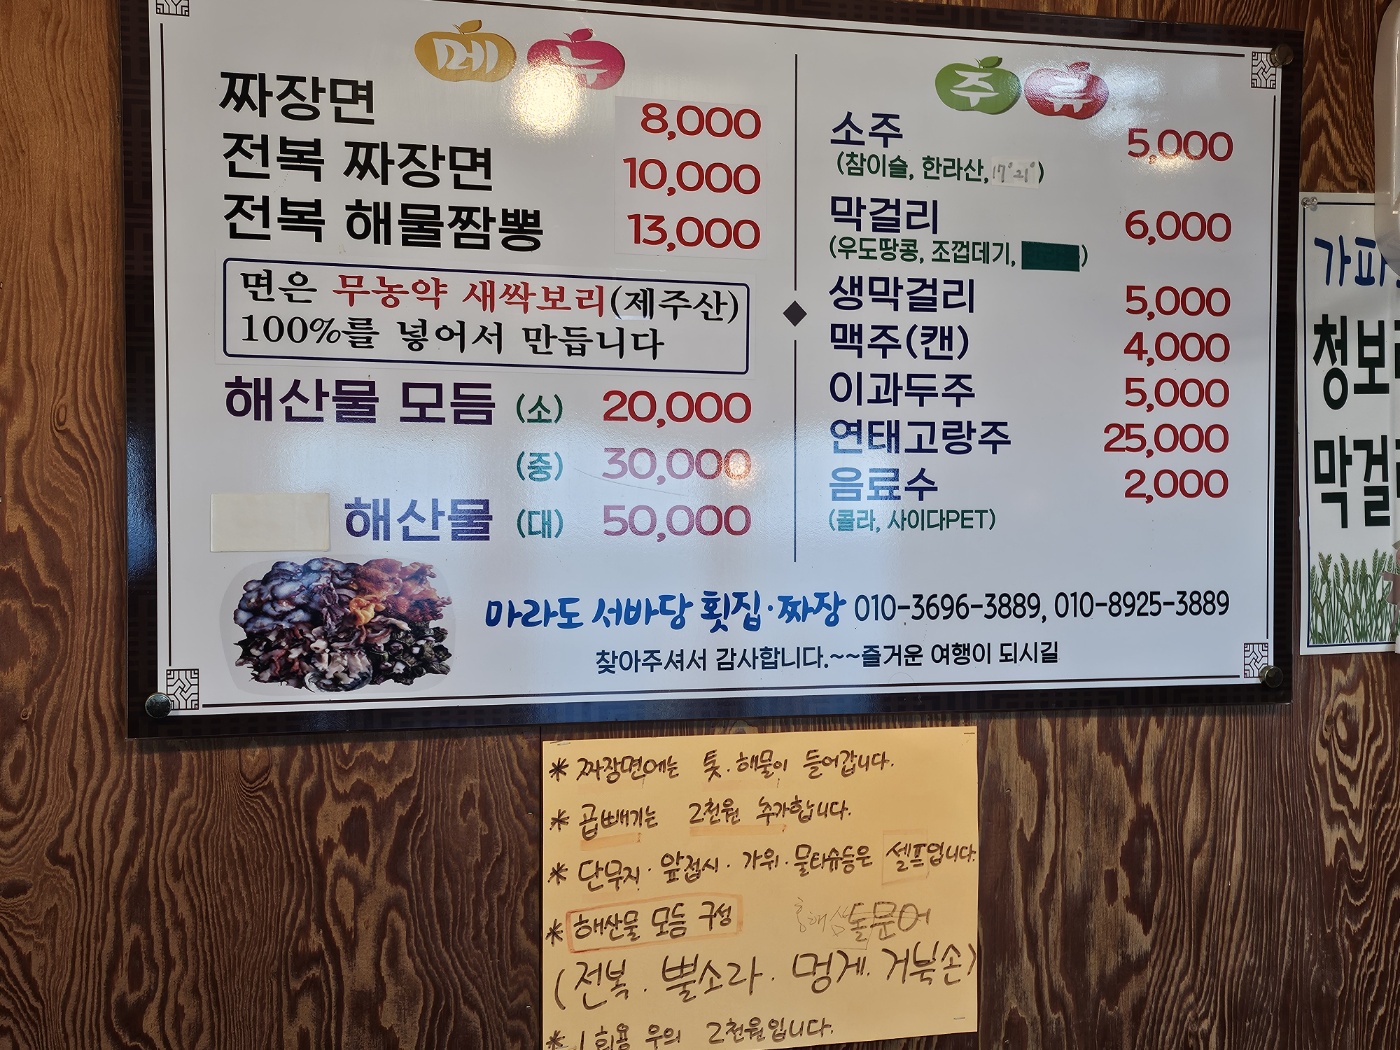 메뉴
짜장면 8,000
전복 짜장면 10,000
전복 해물짬뽕 13,000
면은 무농약 새싹보리(제주산)
100%를 넣어서 만듭니다
해산물 모듬 (소) 20,000
(중) 30,000
해산물 (대) 50,000
주류
소주 5,000
(참이슬, 한라산, 17° 21°)
막걸리 6,000
(우도땅콩, 조껍데기, )
생막걸리 5,000
맥주(캔) 4,000
이과두주 5,000
연태고량주 25,000
음료수 2,000
(콜라, 사이다PET)
마라도 서바당 횟집·짜장 010-3696-3889, 010-8925-3889
찾아주셔서 감사합니다.~~즐거운 여행이 되시길
가파
청보
막걸
* 짜장면에는 톳·해물이 들어갑니다.
* 곱빼기는 2천원 추가합니다.
* 단무지·앞접시·가위·물티슈등은 셀프입니다.
* 해산물 모듬 구성 홍해삼 돌문어
(전복·뿔소라·멍게·거북손)
* 1회용 우의 2천원입니다.